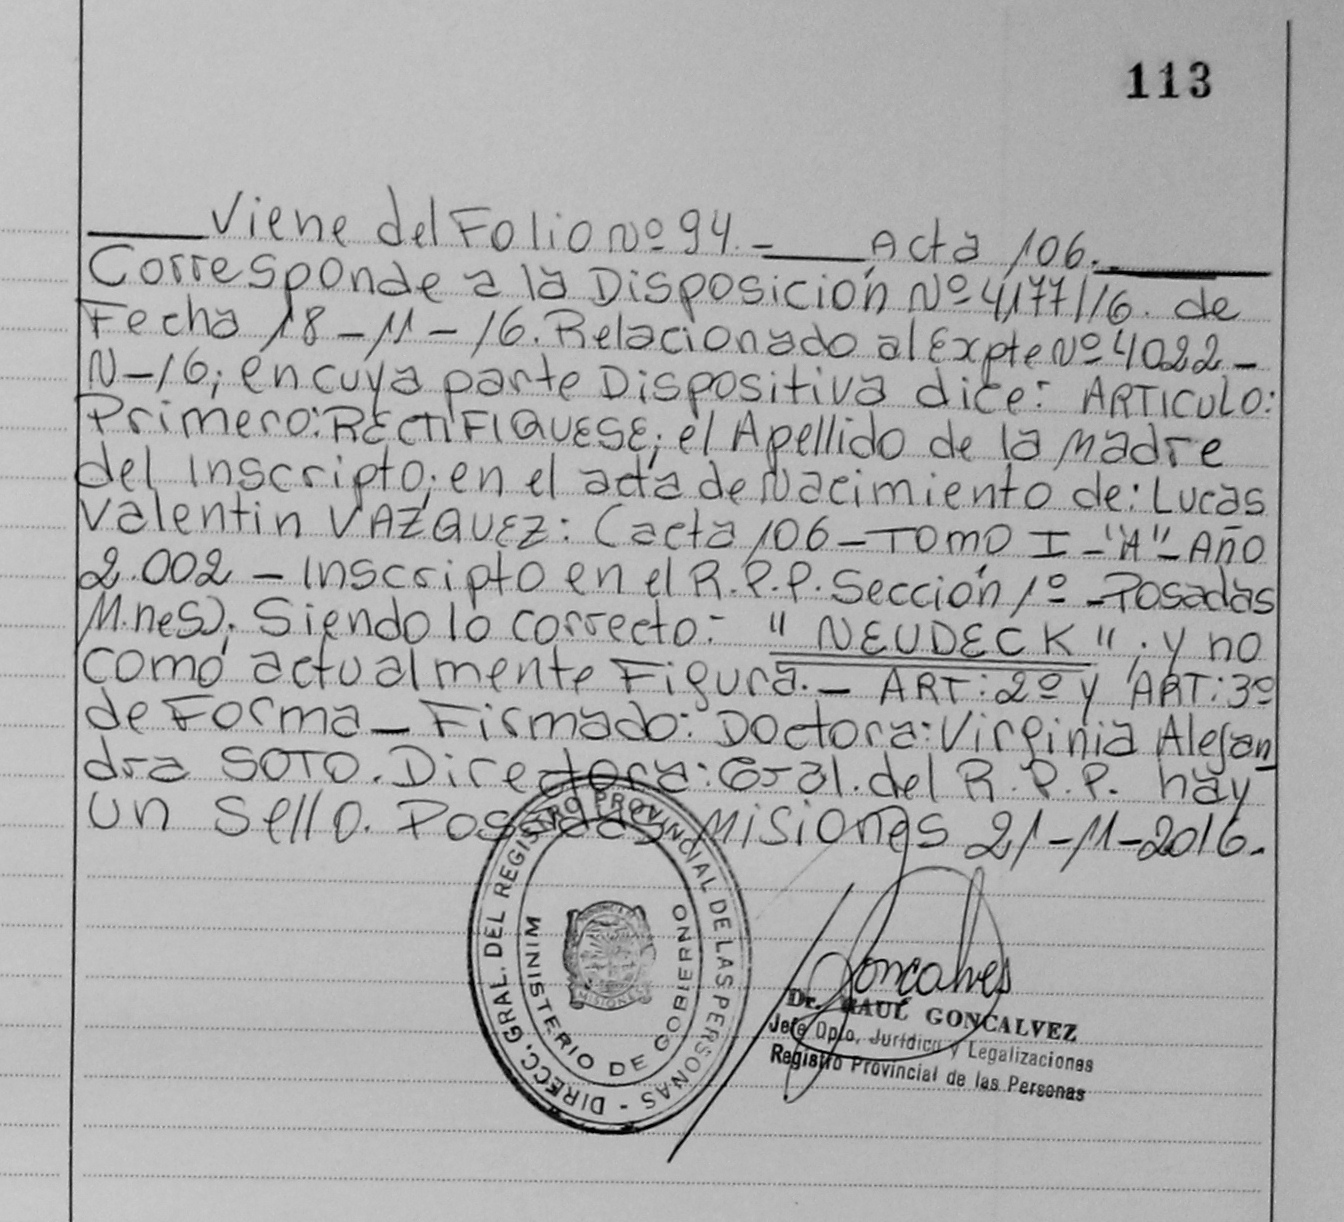 113
Viene del Folio Nº 94.- Acta 106.
Corresponde a la Disposición Nº 4177/16. de
Fecha 18-11-16. Relacionado al Expte Nº 4022-
N-16; en cuya parte Dispositiva dice: ARTICULO:
Primero: RECTIFIQUESE; el Apellido de la Madre
del Inscripto; en el acta de Nacimiento de: Lucas
Valentin VAZQUEZ: (acta 106-Tomo I-"A"-Año
2.002 - Inscripto en el R.P.P. Sección 1º -Posadas
M.nes). Siendo lo correcto: "NEUDECK"; y no
como actualmente Figura.- ART: 2º y ART: 3º
de Forma - Firmado: Doctora: Virginia Alejan
dra SOTO. Directora: Gral. del R.P.P. hay
un sello. Posadas Misiones 21-11-2016.
DIRECC. GRAL. DEL REGISTRO PROVINCIAL DE LAS PERSONAS -
MINISTERIO DE GOBIERNO
MISIONES
Goncalves
Dr. RAUL GONCALVEZ
Jefe Dpto. Jurídico y Legalizaciones
Registro Provincial de las Personas